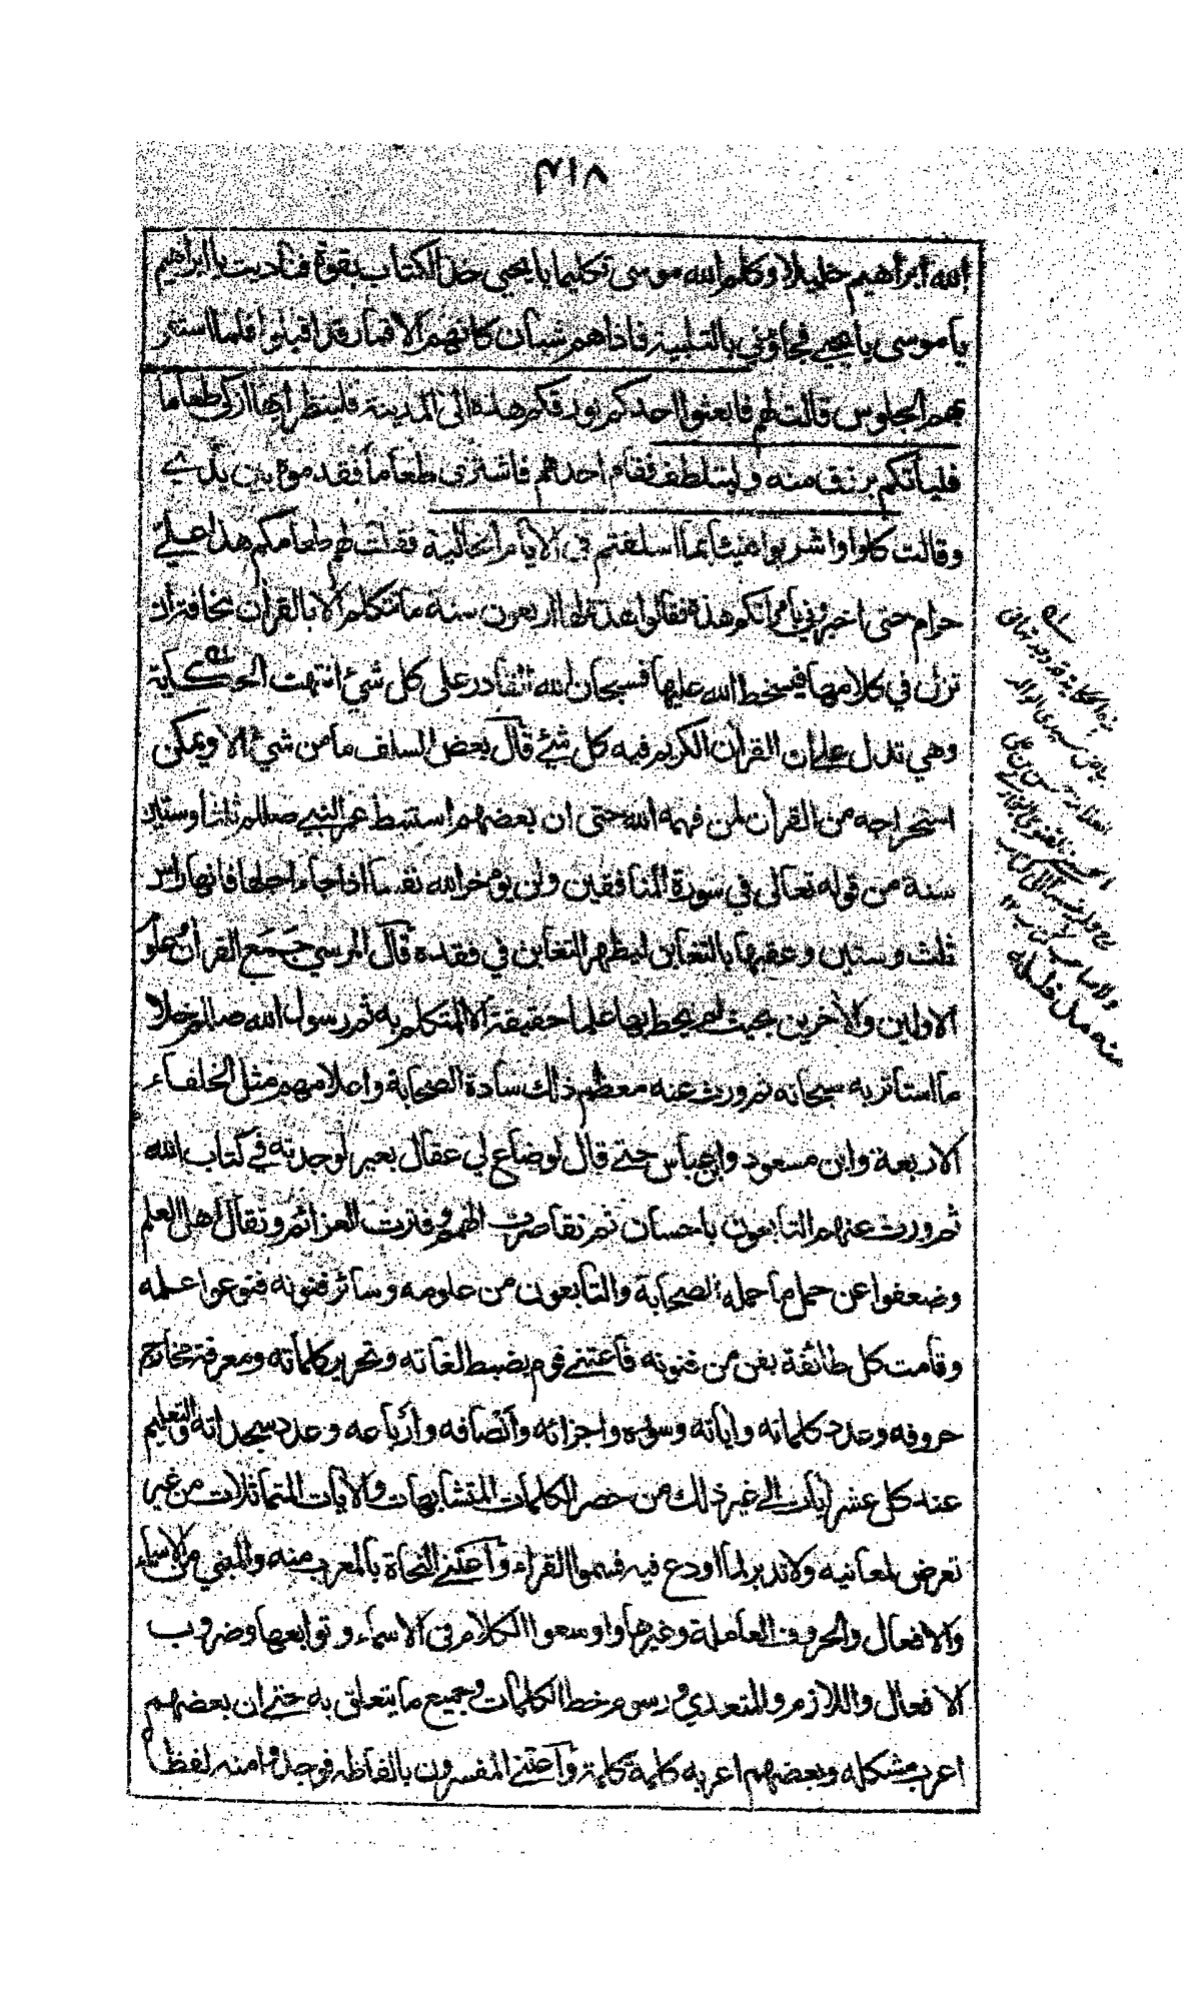 ٣١٨
الله ابراهيم خليلا وكلم الله موسى تكليما يا يحيى خذ الكتاب بقوة فناديت يا ابراهيم
يا موسى يا يحيى فجاؤني بالتلبية فاذا هم شبان كانهم الاقمار قد اقبلوا فلما استقر
بهم الجلوس قالت لهم فابعثوا احدكم بورقكم هذه الى المدينة فلينظر ايها ازكى طعاما
فلياتكم برزق منه وليتلطف فقام احدهم فاشترى طعاما فقدموه بين يدي
وقالت كلوا واشربوا هنيئا بما اسلفتم في الايام الخالية فقلت لهم طعامكم هذا علي
حرام حتى اخبروني بامراتكم هذه فقالوا هذه لها اربعون سنة ما تتكلم الا بالقران مخافة ان
تزل في كلامها فيسخط الله عليها فسبحان الله القادر على كل شئ انتهت الحكاية
وهي تدل على ان القران الكريم فيه كل شئ قال بعض السلف ما من شئ الا ويمكن
استخراجه من القران لمن فهمه الله حتى ان بعضهم استنبط عمر النبي صللم ثلثا وستين
سنة من قوله تعالى في سورة المنافقين ولن يؤخر الله نفسا اذا جاء اجلها فانها راس
ثلث وستين وعقبها بالتغابن ليظهر التغابن في فقده قال المرسي جمع القران علوم
الاولين والاخرين بحيث لم يحط بها علما حقيقة الا المتكلم به ثم رسول الله صللم خلا
ما استاثر به سبحانه ثم ورث عنه معظم ذلك سادة الصحابة واعلامهم مثل الخلفاء
الاربعة وابن مسعود وابن عباس حتى قال لو ضاع لي عقال بعير لوجدته في كتاب الله
ثم ورث عنهم التابعون باحسان ثم تقاصرت الهمم وفترت العزائم وتقال اهل العلم
وضعفوا عن حمل ما حمله الصحابة والتابعون من علومه وسائر فنونه فنوعوا علمه
وقامت كل طائفة بفن من فنونه فاعتنى قوم بضبط لغاته وتحرير كلماته ومعرفة مخارج
حروفه وعدد كلماته واياته وسوره واجزائه وانصافه وارباعه وعدد سجداته والتعليم
عند كل عشر ايات الى غير ذلك من حصر الكلمات المتشابهات والايات المتماثلات من غير
تعرض لمعانيه ولا تدبر لما اودع فيه فسموا القراء واعتنى النحاة بالمعرب منه والمبني من الاسماء
والافعال والحروف العاملة وغيرها واوسعوا الكلام في الاسماء وتوابعها وضروب
الافعال واللازم والمتعدي ورسوم خط الكلمات وجميع ما يتعلق به حتى ان بعضهم
اعرب مشكله وبعضهم اعربه كلمة كلمة واعتنى المفسرون بالفاظه فوجدوا منه لفظا